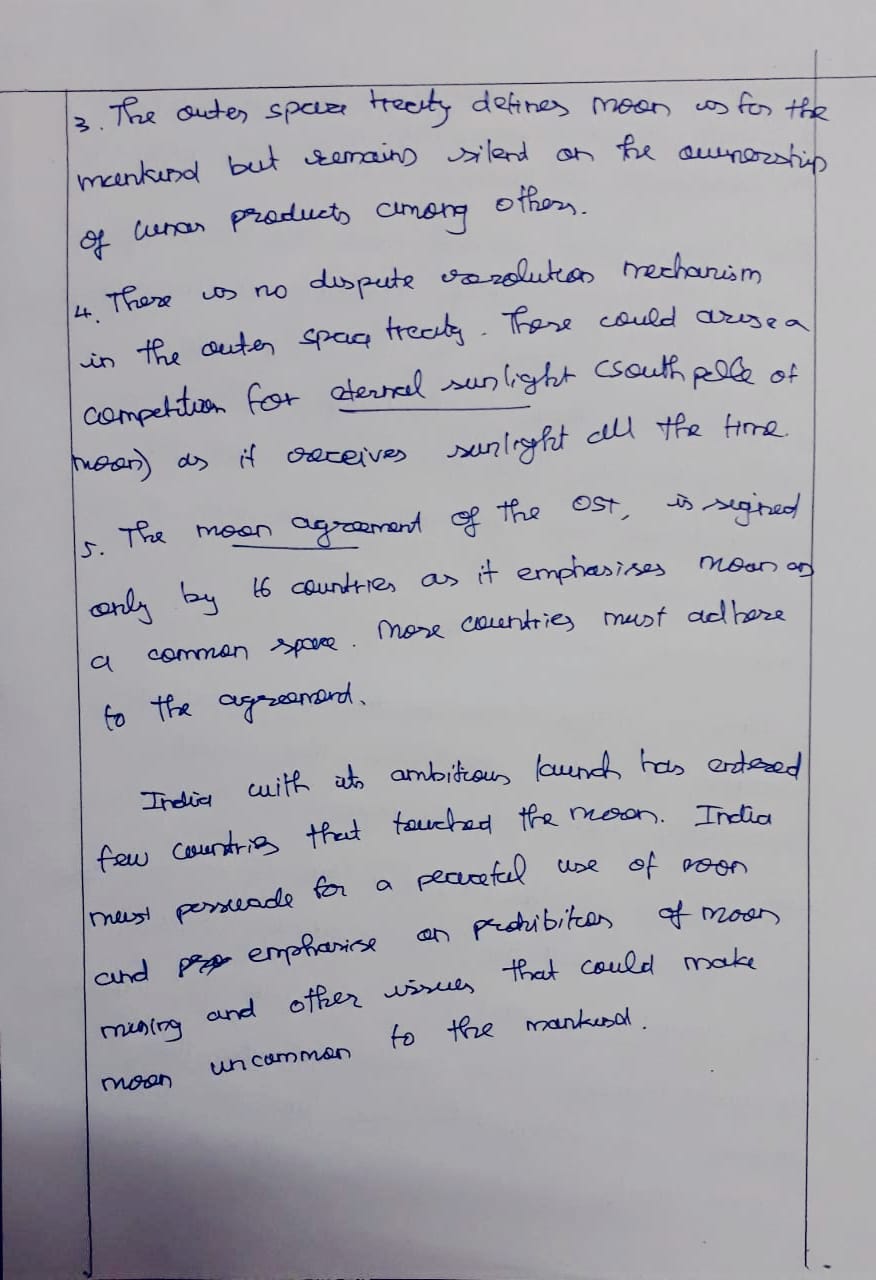 3. The outer space treaty defines moon is for the
mankind but remains silent on the ownership
of lunar products among others.
4. There is no dispute resolution mechanism
in the outer space treaty. There could arise a
competition for eternal sunlight (south pole of
moon) as it receives sunlight all the time.
5. The moon agreement of the OST, is signed
only by 16 countries as it emphasises moon as
a common space. More countries must adhere
to the agreement.
India with its ambitious launch has entered
few countries that touched the moon. India
must persuade for a peaceful use of moon
and emphasise on prohibition of moon
mining and other issues that could make
moon uncommon to the mankind.